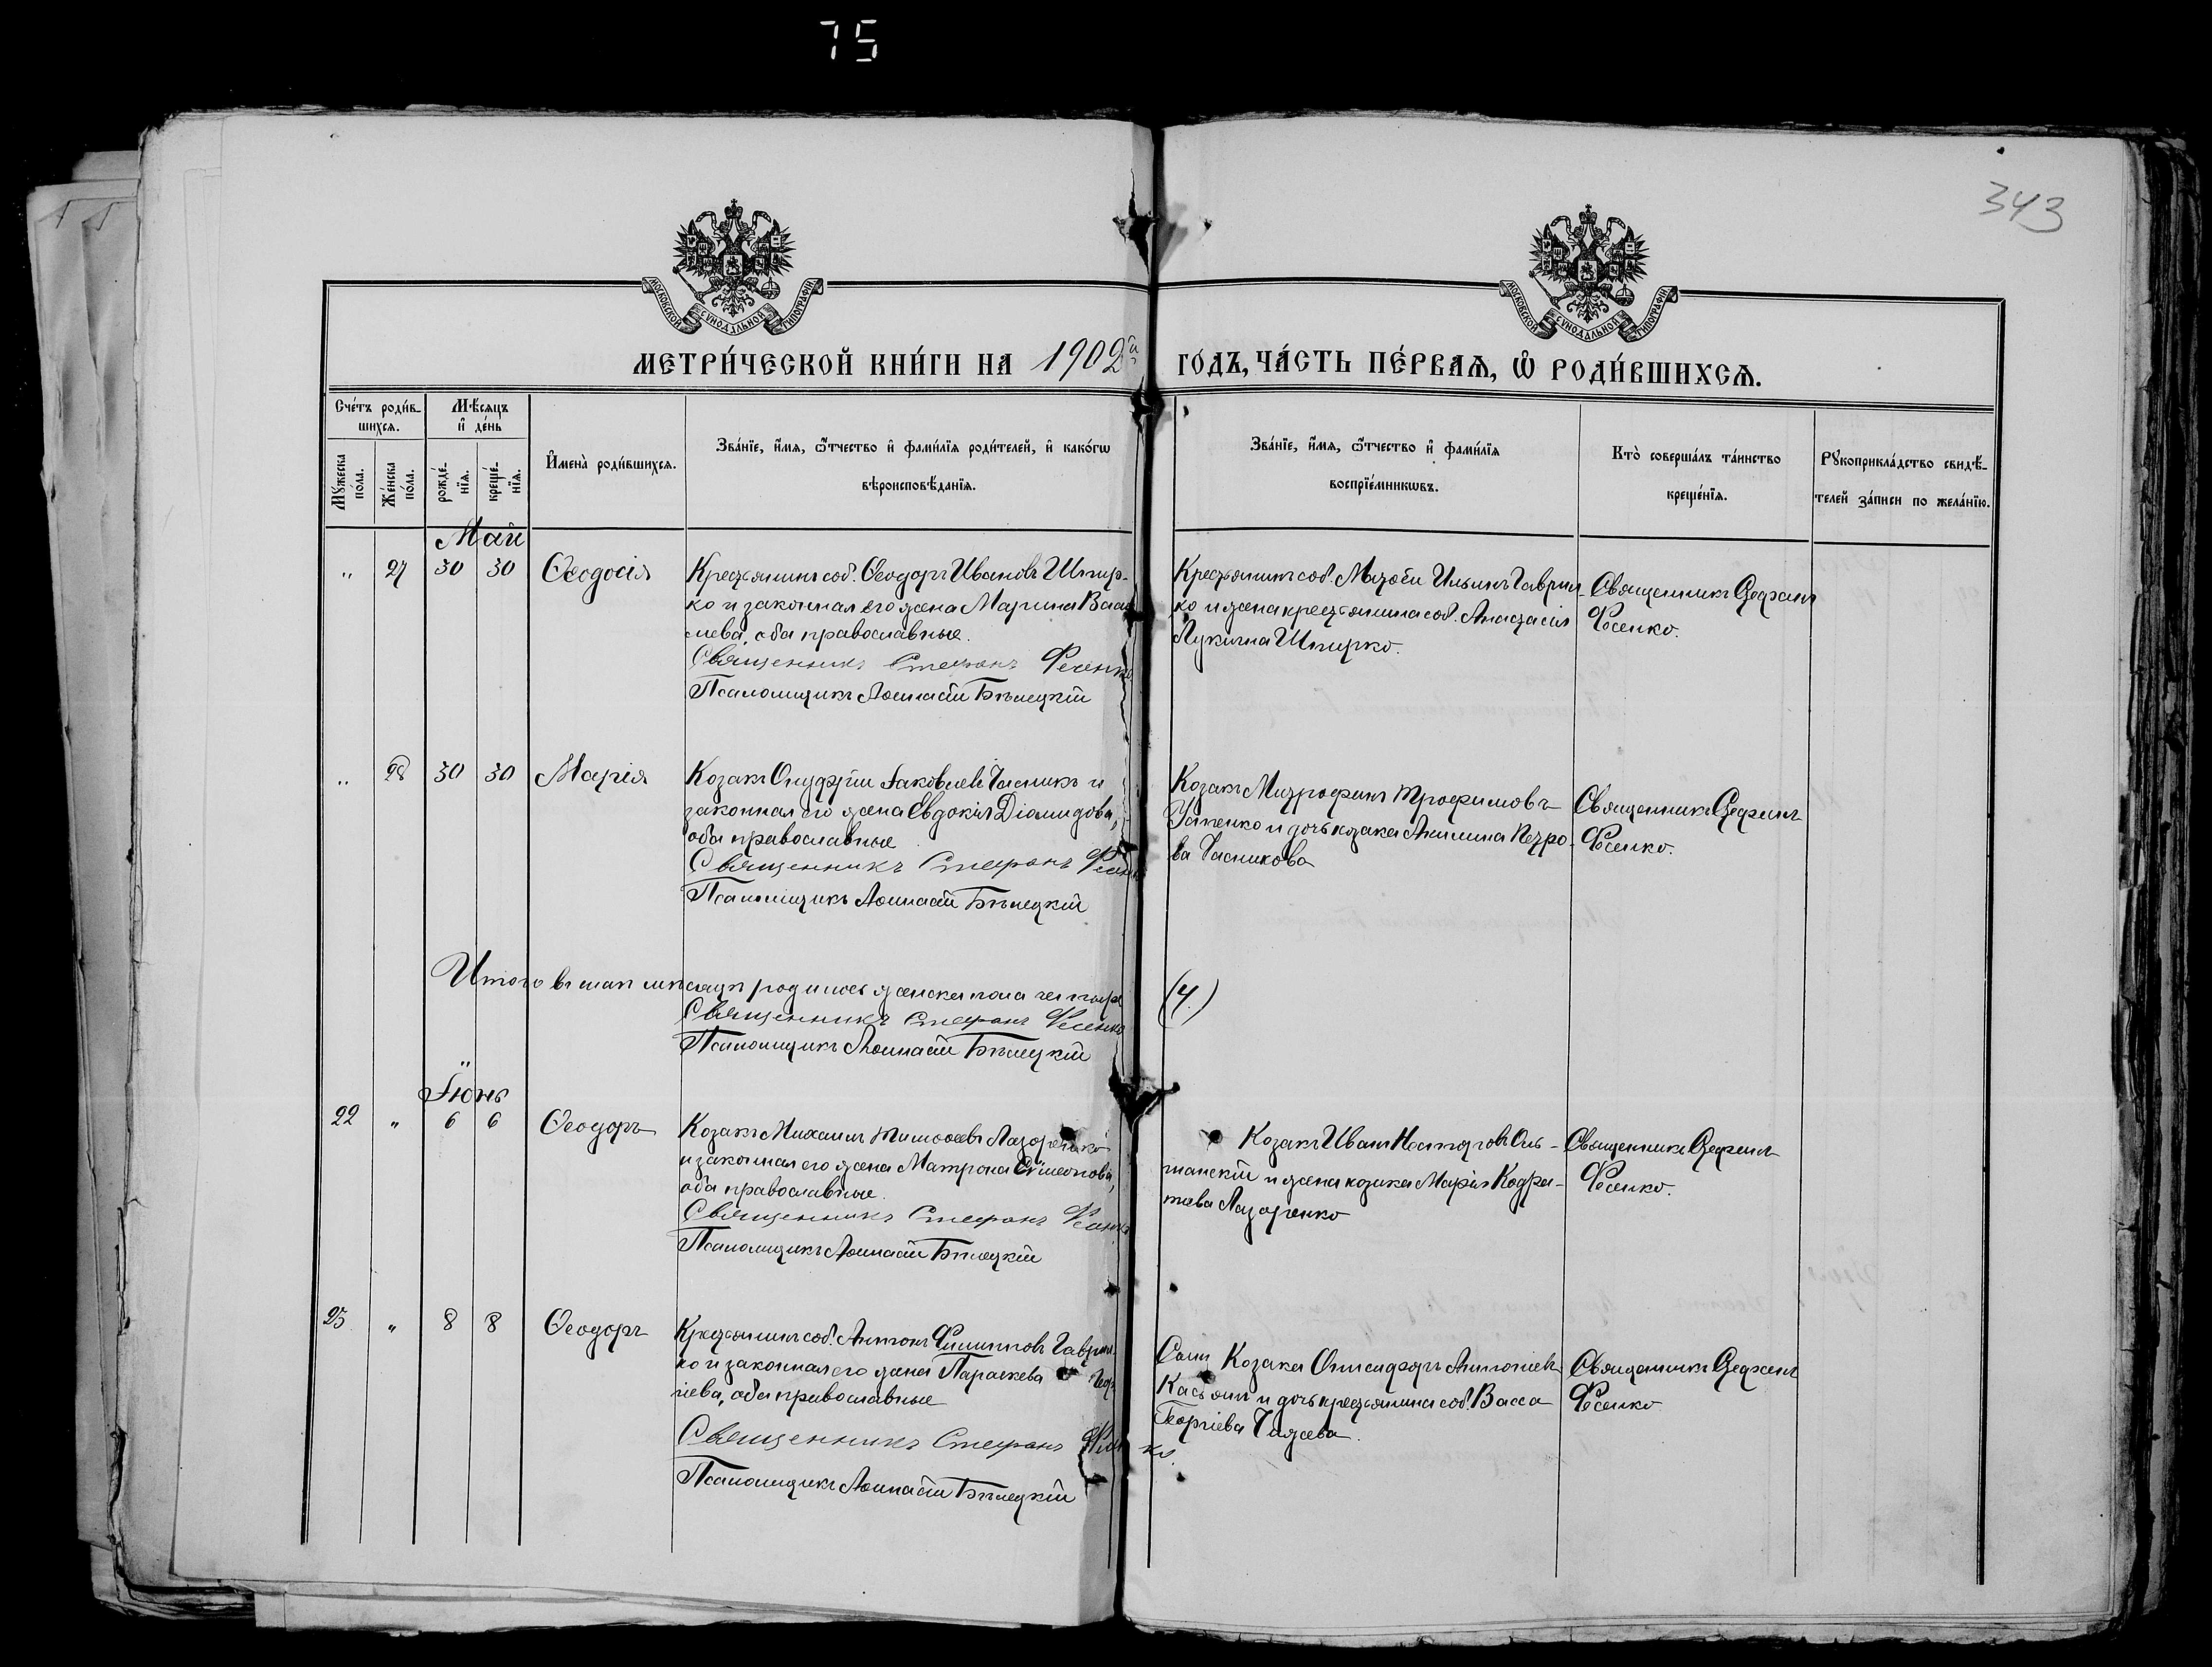 75
343
МОСКОВСКОЙ СѴНОДАЛЬНОЙ ТИПОГРАФІИ
МОСКОВСКОЙ СѴНОДАЛЬНОЙ ТИПОГРАФІИ
МЕТРИ́ЧЕСКОЙ КНИ́ГИ НА 1902й ГО́ДЪ, ЧА́СТЬ ПЕ́РВАѦ, Ѿ РОДИ́ВШИХСѦ.
Сче́тъ роди́в-
шихсѧ.
Мꙋжеска по́ла.
Же́нска по́ла.
Мѣ́сѧцъ
и҆ де́нь
рожде́-
нїѧ.
креще́-
нїѧ.
И҆мена̀ роди́вшихсѧ.
Зва́нїе, и҆́мѧ, ѻ҆́тчество и҆ фами́лїѧ роди́телей, и҆ како́гѡ
вѣроисповѣ́данїѧ.
Зва́нїе, и҆́мѧ, ѻ҆́тчество и҆ фами́лїѧ
воспрїе́мникѡвъ.
Кто̀ соверша́лъ та́инство
креще́нїѧ.
Рꙋкоприкла́дство свидѣ́-
телей за́писи по жела́нїю.
Май
" 27 30 30 Ѳеодосія
Крестьянинъ соб. Ѳеодоръ Ивановъ Шпир-
ко и законная его жена Марина Васи
лева, оба православные.
Священникъ Стефанъ Фесенко
Псаломщикъ Аѳанасій Бѣлецкій
Крестьянинъ соб. Матѳей Ильинъ Гаврил-
ко и жена крестьянина соб. Анастасія
Лукична Шпирко.
Священникъ Стефанъ
Фесенко.
" 28 30 30 Марія
Козакъ Онуфрій Іаковлевъ Часникъ и
законная его жена Евдокія Діомидова,
оба православные
Священникъ Стефанъ Фесен
Псаломщикъ Аѳанасій Бѣлецкій
Козакъ Митрофанъ Трофимовъ
Устенко и дочь козака Акилина Петро-
ва Часникова
Священникъ Стефанъ
Фесенко.
Итого въ маѣ мѣсяцѣ родилось женска пола четыре (4.)
Священникъ Стефанъ Фесенко
Псаломщикъ Аѳанасій Бѣлецкій
Іюнь
22 " 6 6 Ѳеодоръ
Козакъ Михаилъ Тимоѳеевъ Лазоренко
и законная его жена Матрона Симеонова,
оба православные.
Священникъ Стефанъ Фесенко
Псаломщикъ Аѳанасій Бѣлецкій
Козакъ Иванъ Несторовъ Оль-
шанскій и жена козака Марія Кодра-
това Лазоренко
Священникъ Стефанъ
Фесенко.
23 " 8 8 Ѳеодоръ
Крестьянинъ соб. Антонъ Филипповъ Гаврил
ко и законная его жена Параскева Геор
гіева, оба православные
Священникъ Стефанъ Фесенко.
Псаломщикъ Аѳанасій Бѣлецкій
Сынъ Козака Онисифоръ Антоніевъ
Касьянъ и дочь крестьянина соб. Васса
Георгіева
Священникъ Стефанъ
Фесенко